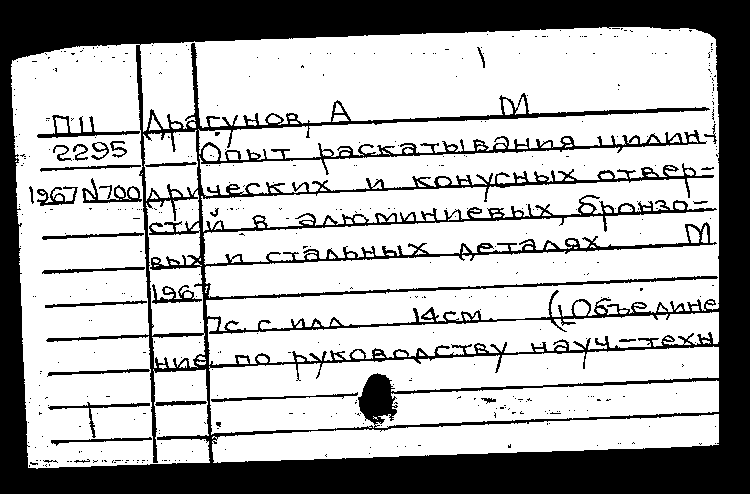 П11 Драгунов, А М
2295 Опыт раскатывания цилин-
1967 N700 дрических и конусных отвер-
стий в алюминиевых, бронзо-
вых и стальных деталях. М
1967
7с. с илл. 14см. (Объедине
ние по руководству науч.-техн